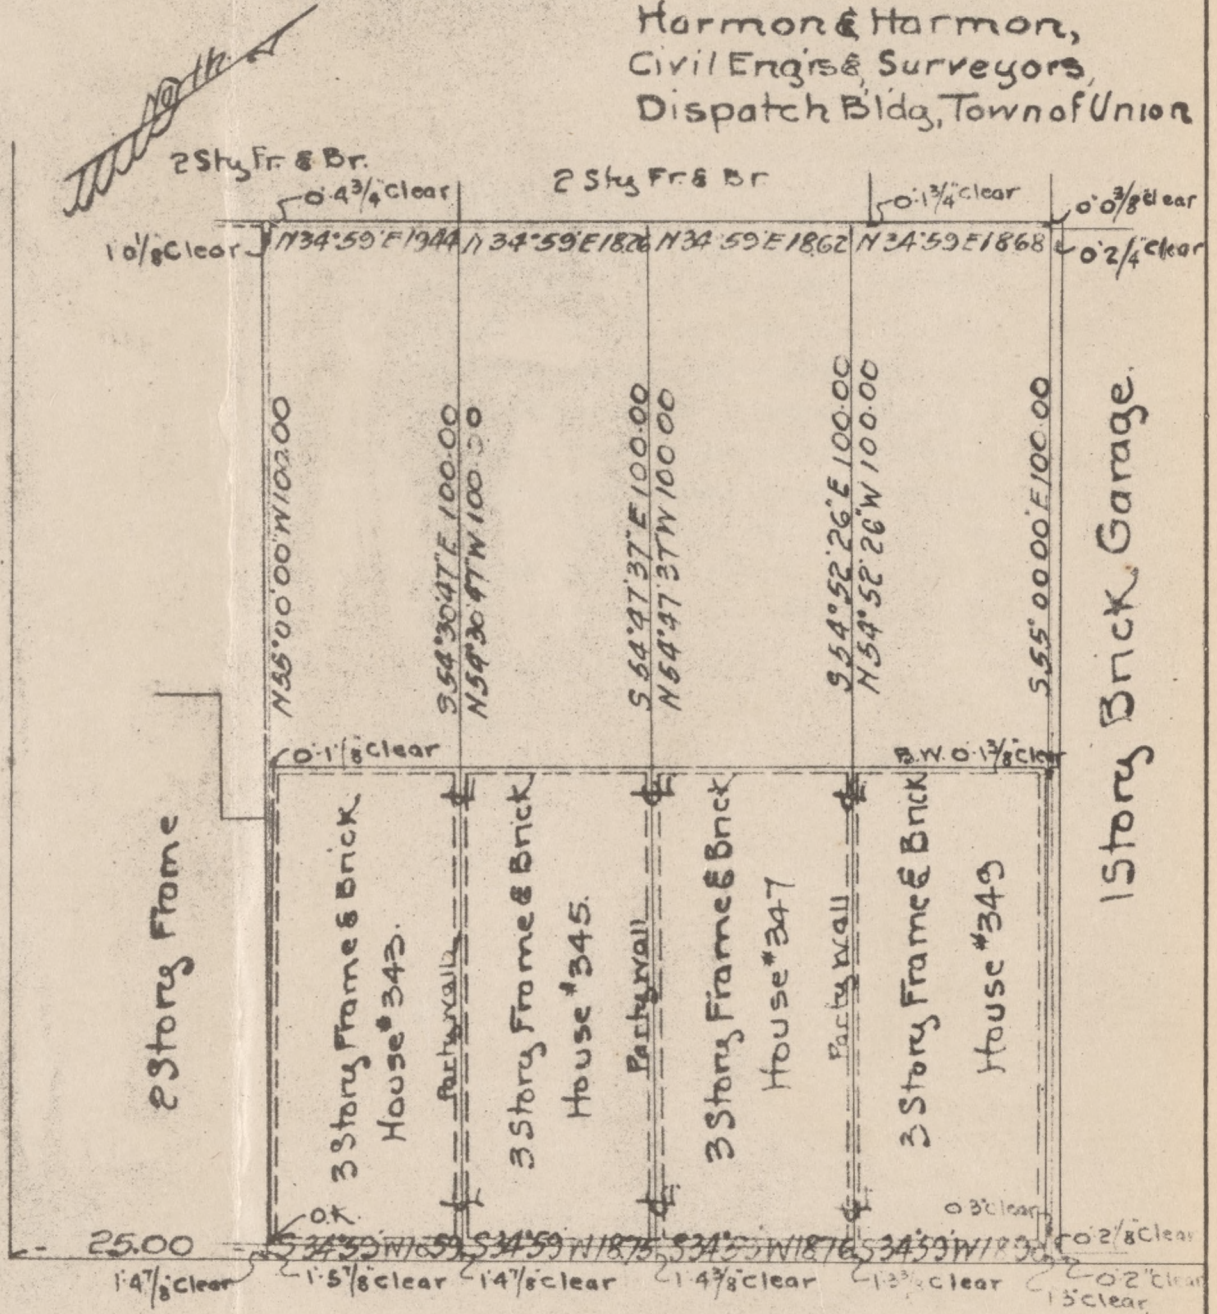 Harmon & Harmon,
Civil Eng'rs & Surveyors,
Dispatch Bldg, Town of Union
North
2 Sty Fr. & Br.
2 Sty Fr. & Br
0·4 3/4" Clear
0·1 3/4" Clear
0·0 3/8" Clear
1·0 1/8" Clear
N34°59'E 19.44
N34°59'E 18.26
N34°59'E 18.62
N34°59'E 18.68
0·2 1/4" Clear
N55°00'00"W 100.00
S54°30'47"E 100.00
N54°30'47"W 100.00
S54°47'37"E 100.00
N54°47'37"W 100.00
S54°52'26"E 100.00
N54°52'26"W 100.00
S55°00'00"E 100.00
1 Story Brick Garage.
0·1 1/8" Clear
B.W. 0·1 3/8" Clear
2 Story Frame
3 Story Frame & Brick
House #343.
Party wall
3 Story Frame & Brick
House #345.
Party wall
3 Story Frame & Brick
House #347
Party wall
3 Story Frame & Brick
House #349
O.K.
0·3" Clear
25.00
S34°59'W 16.59
S34°59'W 18.75
S34°59'W 18.76
S34°59'W
0·2 1/8" Clear
1·4 7/8" Clear
1·5 7/8" Clear
1·4 7/8" Clear
1·4 3/8" Clear
Clear
0·2" Clear
Clear